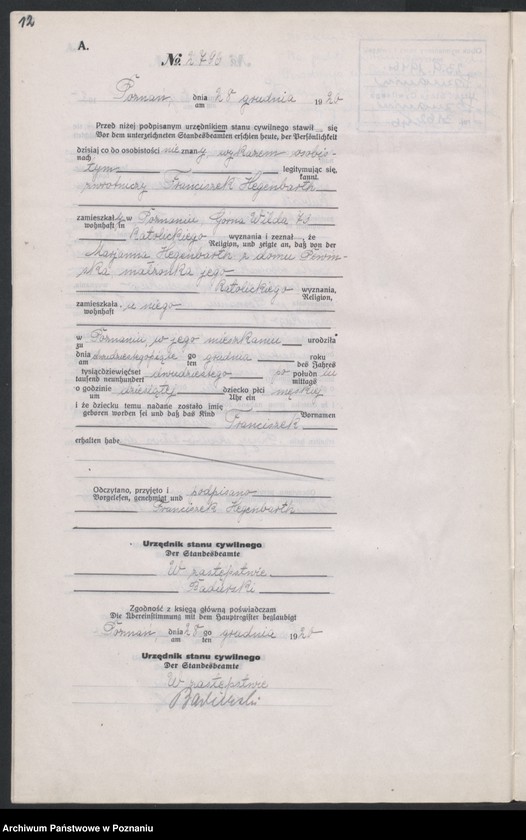 12
A.
№ 2796
Poznań, dnia 28 grudnia 1920
am
Przed niżej podpisanym urzędnikiem stanu cywilnego stawił się
Vor dem unterzeichneten Standesbeamten erschien heute, der Persönlichkeit
dzisiaj co do osobistości nieznany, wykazem osobis-
nach
tym legitymując się,
kannt,
zwrotniczy Franciszek Hegenbarth
zamieszkały w Poznaniu Górna Wilda 73
wohnhaft in
Katolickiego wyznania i zeznał, że
Religion, und zeigte an, daß von der
Marjanna Hegenbarth z domu
ska małżonka jego
Katolickiego wyznania,
Religion,
zamieszkała u niego
wohnhaft
w Poznaniu w jego mieszkaniu urodziła
zu
dnia dwudziestego piątego grudnia roku
am ten des Jahres
tysiącdziewięćset dwudziestego po południu
tausend neunhundert mittags
o godzinie dziesiątej dziecko płci męskiej
um Uhr ein
i że dziecku temu nadane zostało imię
geboren worden sei und daß das Kind Franciszek Vornamen
erhalten habe
Odczytano, przyjęto i podpisano
Vorgelesen, genehmigt und
Franciszek Hegenbarth
Urzędnik stanu cywilnego
Der Standesbeamte
W zastępstwie
Zgodność z księgą główną poświadczam
Die Übereinstimmung mit dem Hauptregister beglaubigt
Poznań, dnia 28 go grudnia 1920
am ten
Urzędnik stanu cywilnego
Der Standesbeamte
W zastępstwie
Archiwum Państwowe w Poznaniu